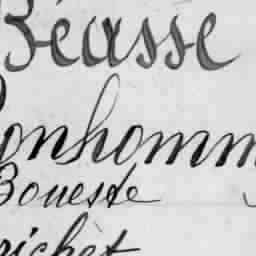 Béasse
Bonhomm
Boueste
richèt